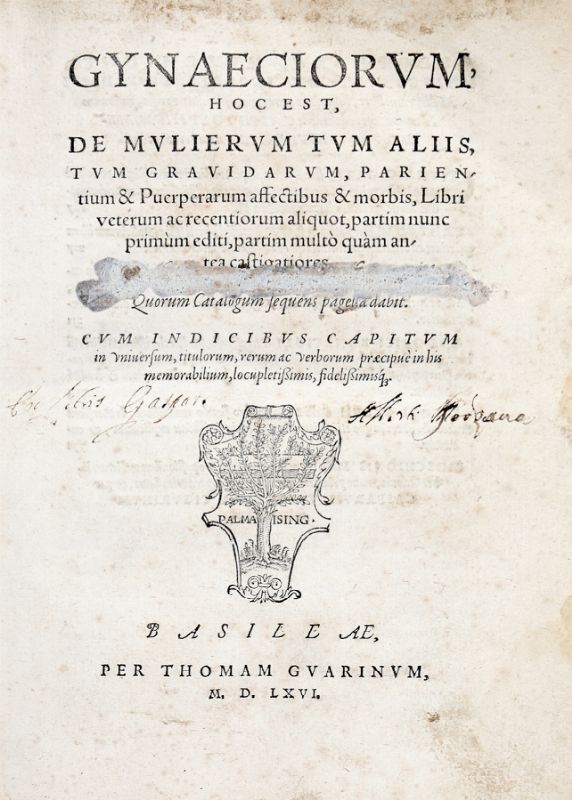 GYNAECIORVM,
HOC EST,
DE MVLIERVM TVM ALIIS,
TVM GRAVIDARVM, PARIEN-
tium & Puerperarum affectibus & morbis, Libri
veterum ac recentiorum aliquot, partim nunc
primùm editi, partim multò quàm an-
tea castigatiores
Quorum Catalogum sequens pagella dabit.
CVM INDICIBVS CAPITVM
in vniuersum, titulorum, rerum ac verborum præcipuè in his
memorabilium, locupletißimis, fidelißimisq́;.
Gaspar.
PALMA ISING.
BASILEAE,
PER THOMAM GVARINVM,
M. D. LXVI.